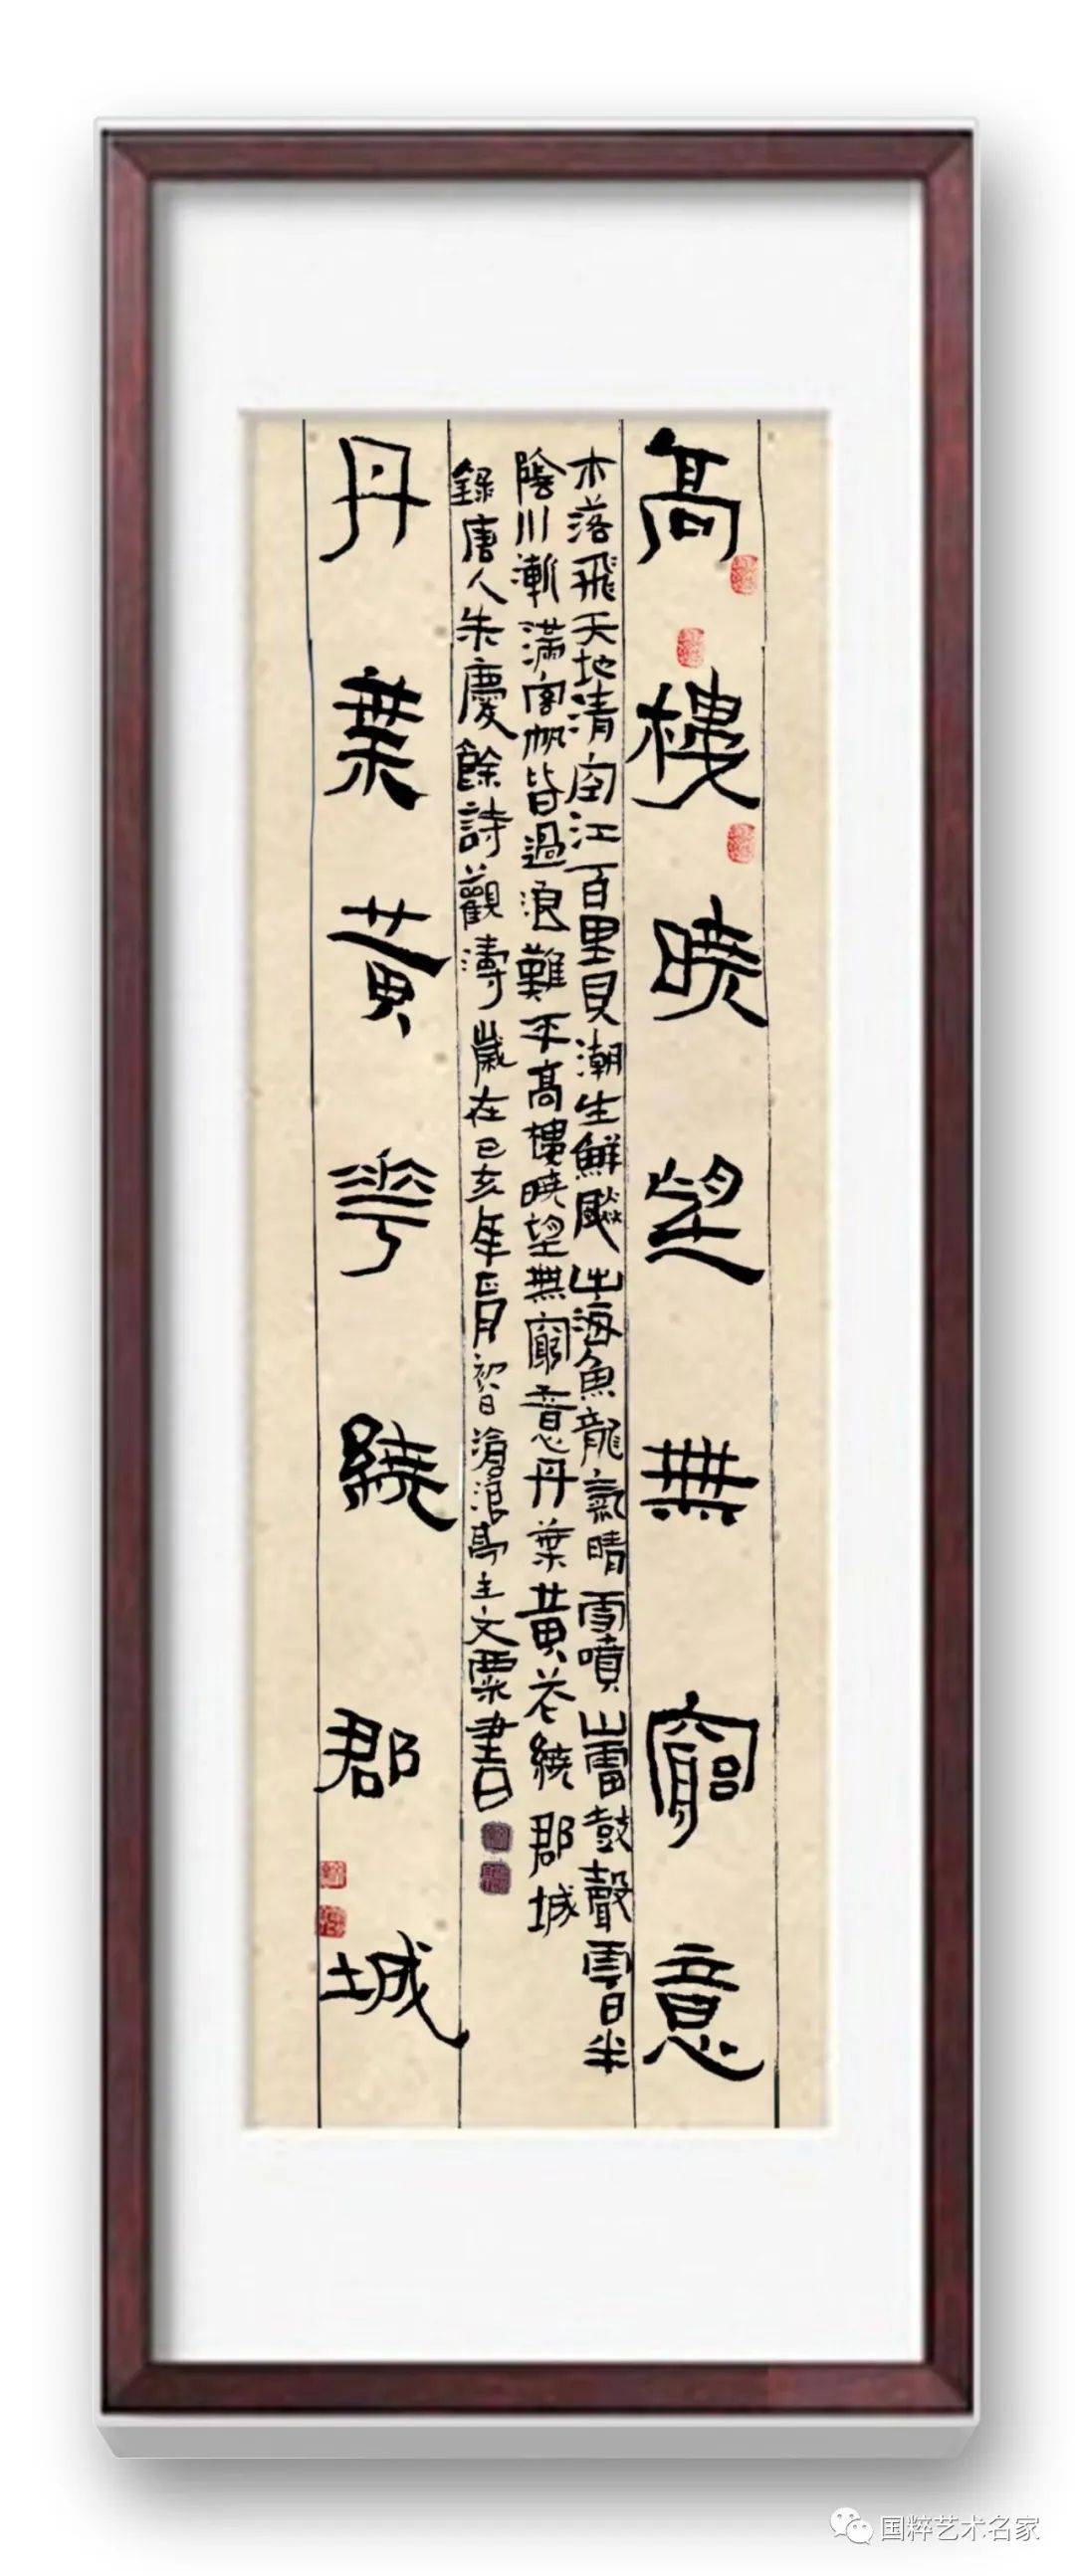 高樓曉望無窮意
木落飛天地清空江百里見潮生鮮飈出海魚龍氣晴雪噴山雷鼓聲雲日半
陰川漸滿客帆皆過浪難平高樓曉望無窮意丹葉黃花繞郡城
錄唐人朱慶餘詩觀濤歲在己亥年 月初 日滄浪亭主文粟書
丹葉黃花繞郡城
国粹艺术名家